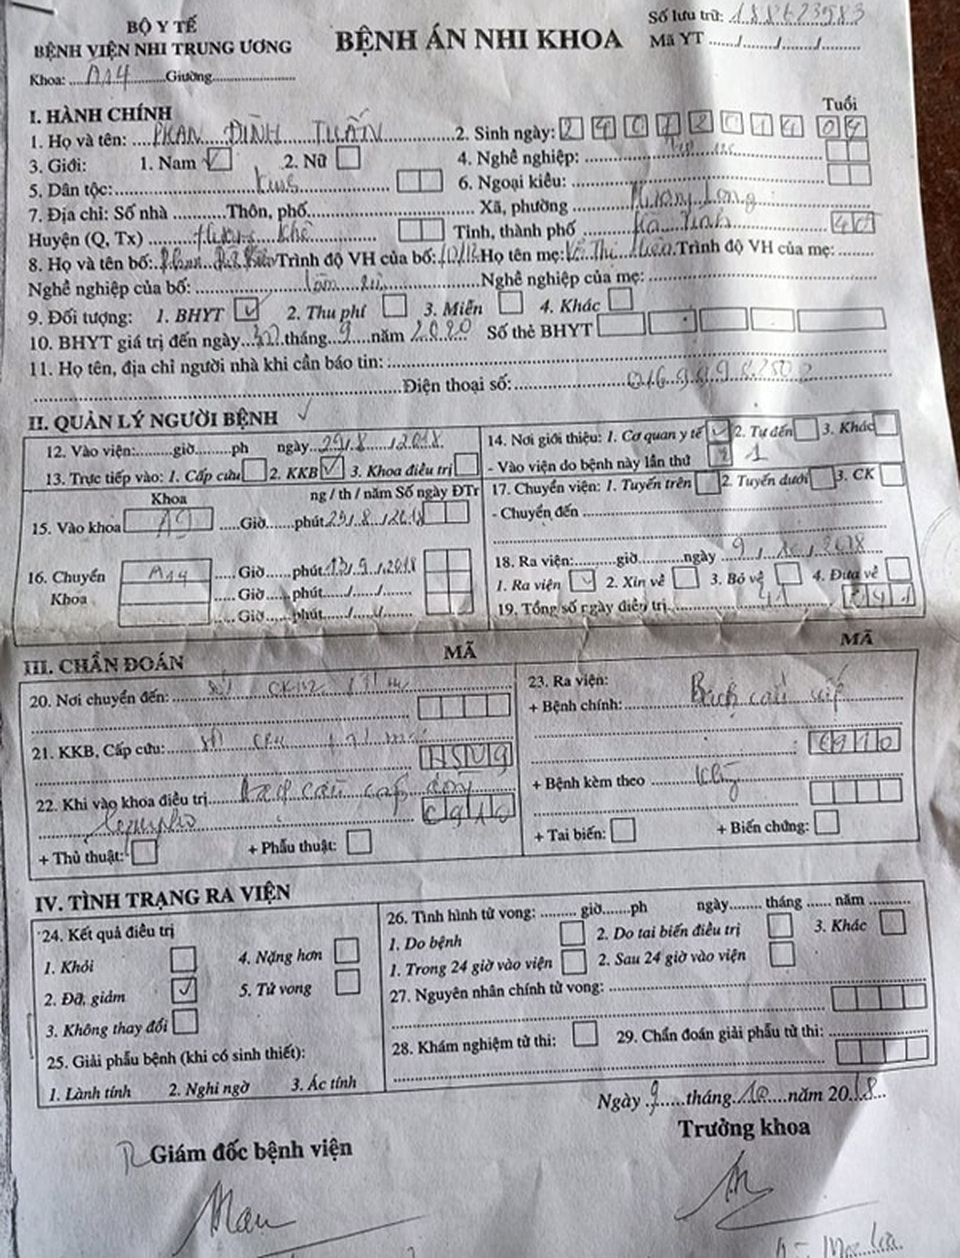 BỘ Y TẾ
BỆNH VIỆN NHI TRUNG ƯƠNG
Khoa: A14 Giường
BỆNH ÁN NHI KHOA
Số lưu trữ:
Mã YT ....../....../....../......
I. HÀNH CHÍNH
Tuổi
1. Họ và tên: PHAN ĐÌNH TUẤN 2. Sinh ngày: 2 4 0 7 2 0 1 4 04
3. Giới: 1. Nam ✓ 2. Nữ 4. Nghề nghiệp:
5. Dân tộc: Kinh 6. Ngoại kiều:
7. Địa chỉ: Số nhà Thôn, phố Xã, phường Hương Long
Huyện (Q, Tx) Hương Khê Tỉnh, thành phố Hà Tĩnh
8. Họ và tên bố: Phan Trình độ VH của bố: Họ tên mẹ: Thị Trình độ VH của mẹ:
Nghề nghiệp của bố: Làm Nghề nghiệp của mẹ:
9. Đối tượng: 1. BHYT ✓ 2. Thu phí 3. Miễn 4. Khác
10. BHYT giá trị đến ngày 30 tháng 9 năm 2020 Số thẻ BHYT
11. Họ tên, địa chỉ người nhà khi cần báo tin:
Điện thoại số:
II. QUẢN LÝ NGƯỜI BỆNH ✓
12. Vào viện: giờ ph ngày 29/8/2018
13. Trực tiếp vào: 1. Cấp cứu 2. KKB ✓ 3. Khoa điều trị
Khoa ng / th / năm Số ngày ĐTr
15. Vào khoa A9 Giờ phút 29/8/2018
16. Chuyển A14 Giờ phút 13/9/2018
Khoa Giờ phút ..../..../....
Giờ phút ..../..../....
14. Nơi giới thiệu: 1. Cơ quan y tế ✓ 2. Tự đến 3. Khác
- Vào viện do bệnh này lần thứ 1
17. Chuyển viện: 1. Tuyến trên 2. Tuyến dưới 3. CK
- Chuyển đến
18. Ra viện: giờ ngày 9/10/2018
1. Ra viện ✓ 2. Xin về 3. Bỏ về 4. Đưa về
19. Tổng số ngày điều trị 41 041
III. CHẨN ĐOÁN
MÃ
MÃ
20. Nơi chuyển đến:
21. KKB, Cấp cứu:
22. Khi vào khoa điều trị Bạch cầu cấp dòng
lympho C910
+ Thủ thuật: + Phẫu thuật:
23. Ra viện:
+ Bệnh chính: Bạch cầu cấp
C910
+ Bệnh kèm theo
+ Tai biến: + Biến chứng:
IV. TÌNH TRẠNG RA VIỆN
24. Kết quả điều trị
1. Khỏi 4. Nặng hơn
2. Đỡ, giảm ✓ 5. Tử vong
3. Không thay đổi
25. Giải phẫu bệnh (khi có sinh thiết):
1. Lành tính 2. Nghi ngờ 3. Ác tính
26. Tình hình tử vong: giờ ph ngày tháng năm
1. Do bệnh 2. Do tai biến điều trị 3. Khác
1. Trong 24 giờ vào viện 2. Sau 24 giờ vào viện
27. Nguyên nhân chính tử vong:
28. Khám nghiệm tử thi: 29. Chẩn đoán giải phẫu tử thi:
Ngày 9 tháng 10 năm 2018
Giám đốc bệnh viện
Trưởng khoa